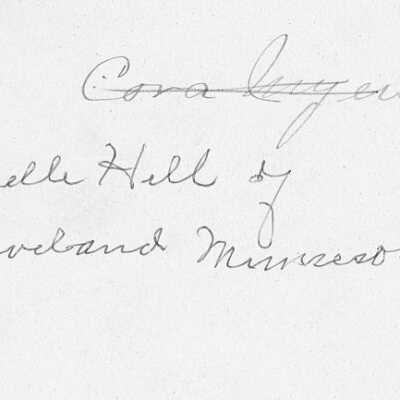 Cora
elle Hill of
veland Minneso